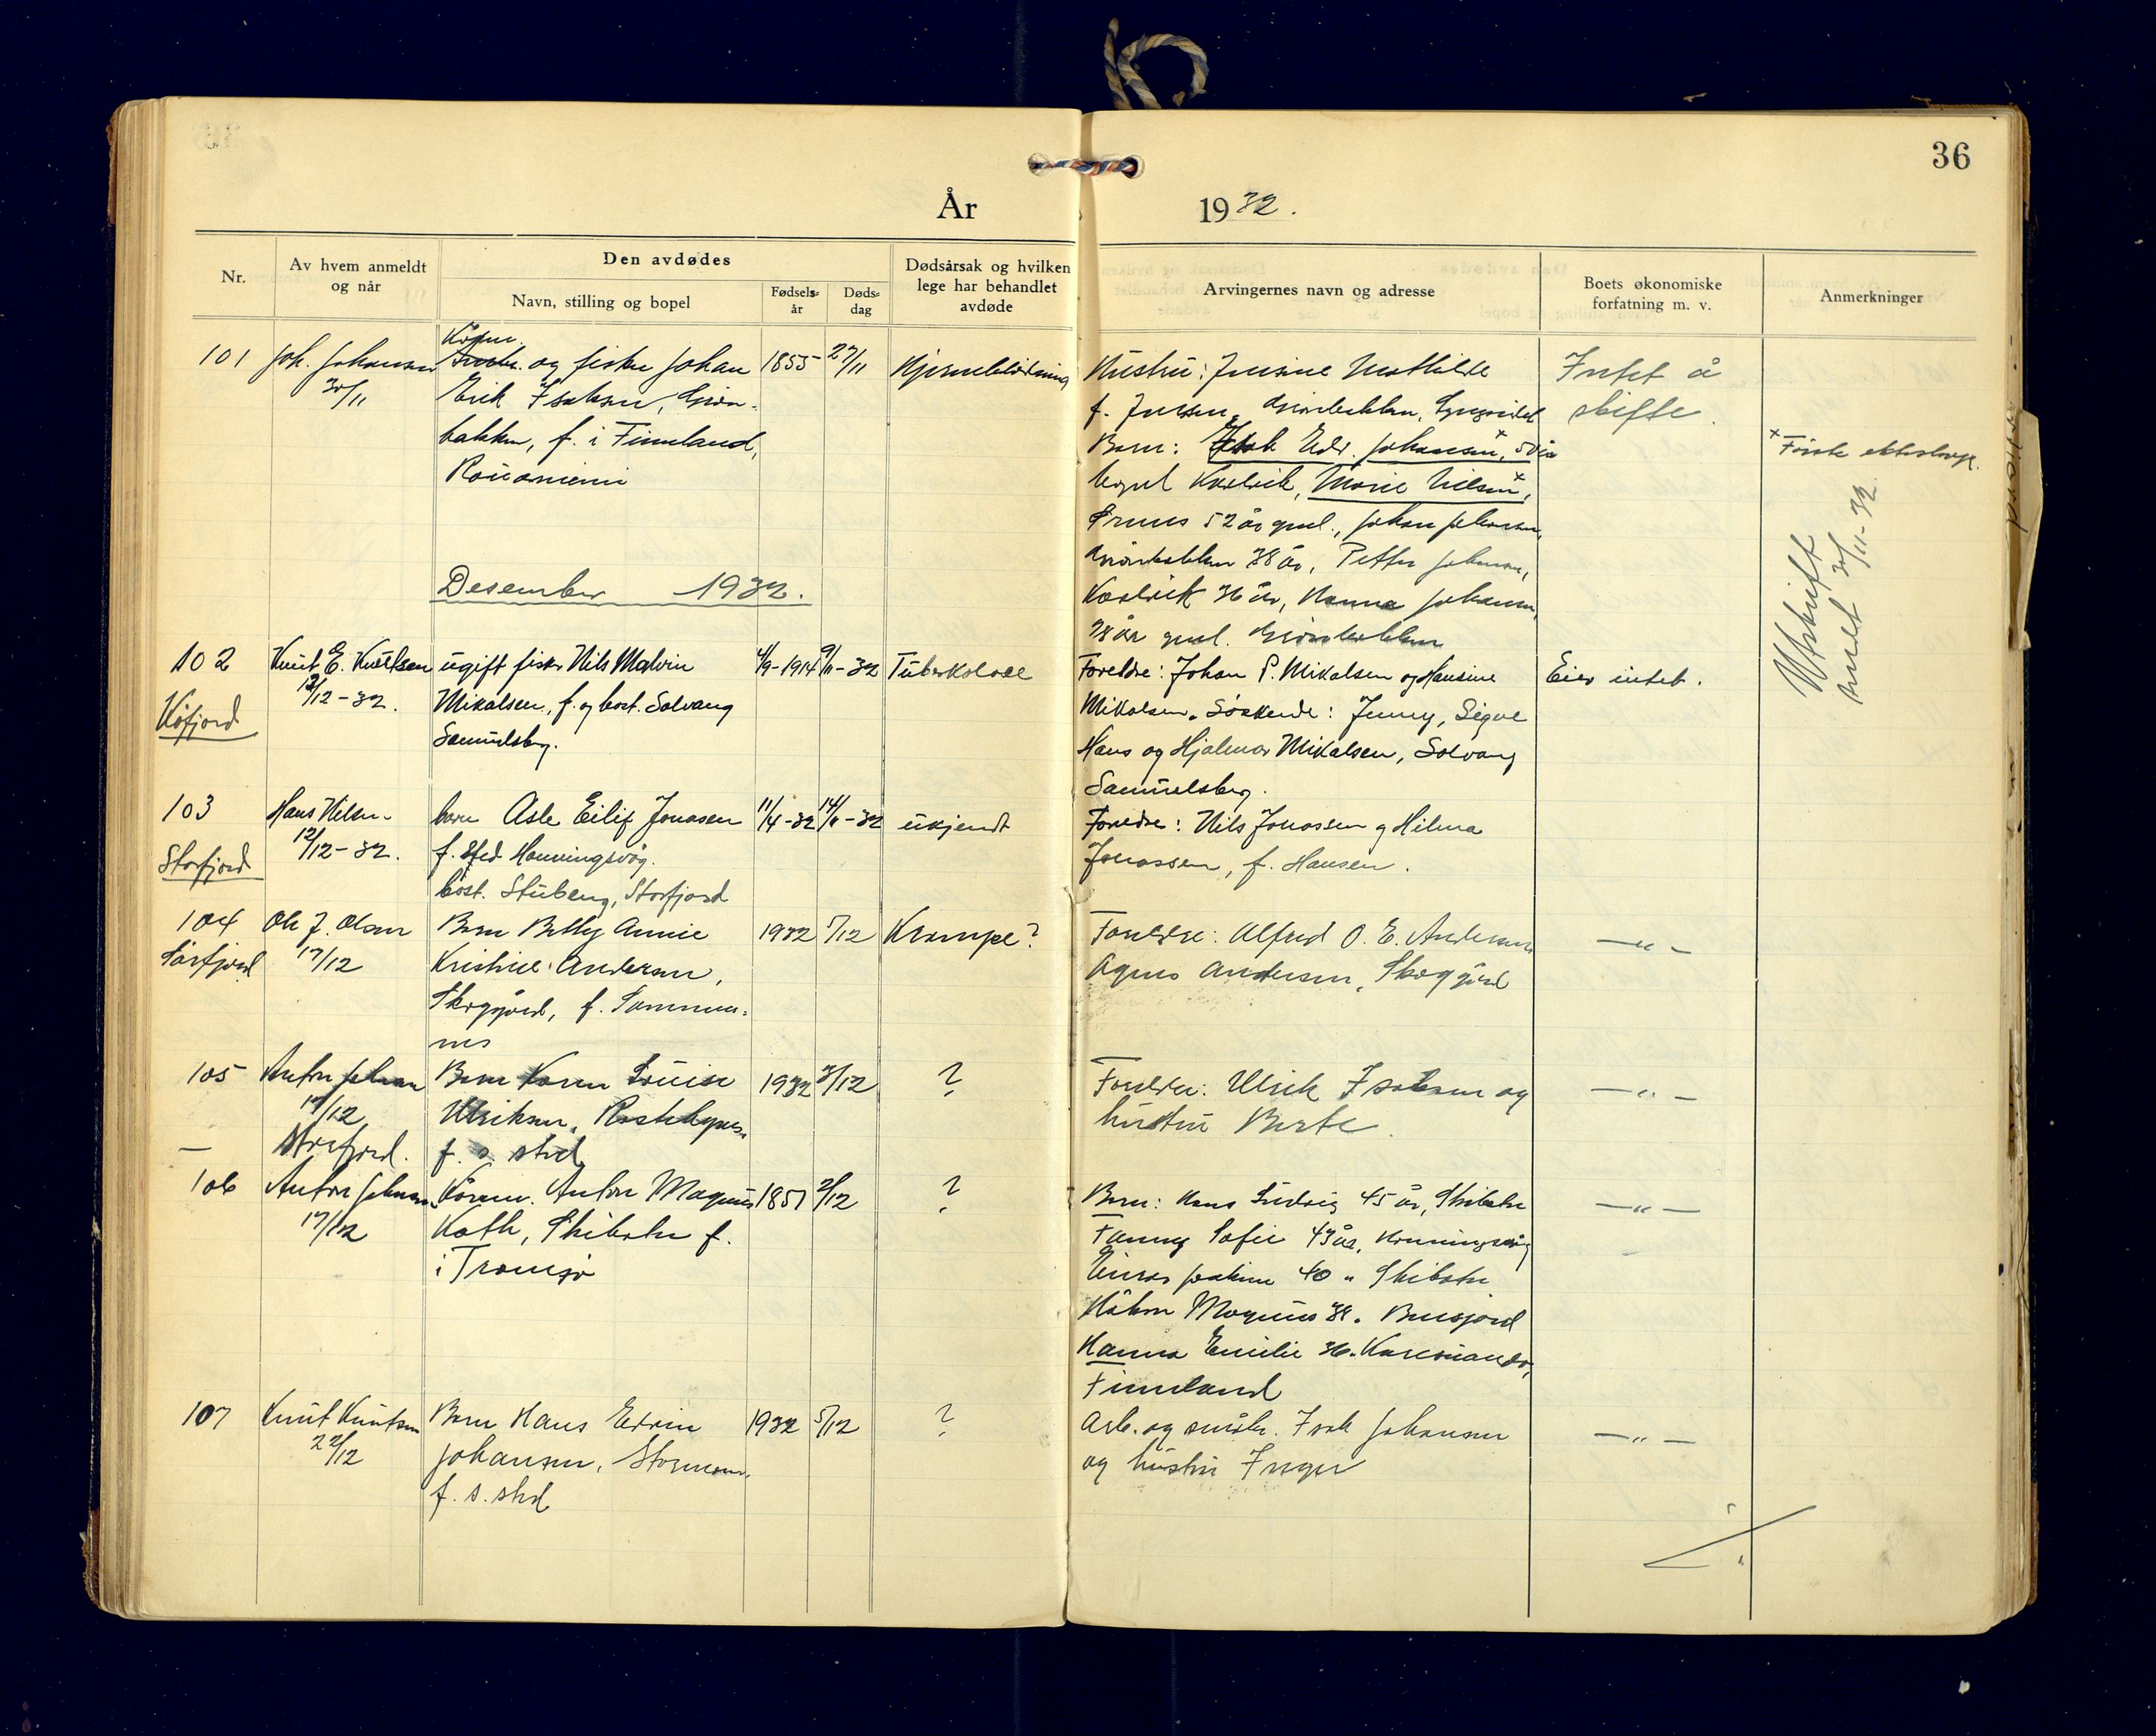 36
År 1932.
Nr.
Av hvem anmeldt
og når
Den avdødes
Navn, stilling og bopel
Fødsels-
år
Døds-
dag
Dødsårsak og hvilken
lege har behandlet
avdøde
Arvingernes navn og adresse
Boets økonomiske
forfatning m. v.
Anmerkninger
101
Joh. Johansen
30/11
og fisker Johan
Erik Isaksen, Grøn-
bakken, f. i Finnland,
Rouaniemi
1855
27/11
Hjerneblødning
Hustru: Jensine Mathilde
f. Jensen, Grønbakken, Lyngseidet
Barn: Isak Edv. Johansen x, 50 år
Marie Nilsen x,
52 år gml., Johan Johansen,
Grønbakken 38 år, Petter Johansen,
36 år, Hanna Johansen,
28 år gml. Grønbakken
Intet å
skifte.
x Første ekteskap.
Utskrift
30/11-32
Desember 1932.
102
Kåfjord
Knut E. Knutsen
12/12-32.
ugift fisker Nils Malvin
Mikalsen, f. og bost. Solvang
Samuelsberg.
4/9-1914
9/11-32
Tuberkolose
Foreldre: Johan P. Mikalsen og Hansine
Mikalsen. Søskende: Jenny, Sigve
Hans og Hjalmar Mikalsen, Solvang
Samuelsberg.
Eier intet.
103
Storfjord
Hans Nilsen
12/12-32.
barn Asle Eilif Jonasen
f. sted Honningsvåg.
bost. Stubeng, Storfjord
11/4-32
14/11-32
ukjendt
Foreldre: Nils Jonassen og Hilma
Jonassen, f. Hansen.
104
Sørfjord
Ole J. Olsen
17/12
Barn Betty Annie
Kristine Andersen,
Skoggård, f.
1932
5/12
Krampe?
Foreldre: Alfred O. E. Andersen
Agnes Andersen, Skoggård
—"—
105
Anton Johansen
17/12
Storfjord.
Barn Karen Louise
Ulriksen,
f. s. sted
1932
3/12
?
Foreldre: Ulrik Isaksen og
hustru Berte.
—"—
106
Anton Johansen
17/12
Anton Magnus
Kath, Skibotn f.
i Tromsø
1851
2/12
?
Barn: Hans Ludvig 45 år, Skibotn
Fanny Sofie 43 år, Honningsvåg
Einar Joakim 40 " Skibotn
Håkon Magnus 38 "
Hanna Emilie 36 " Karesuando,
Finnland
—"—
107
Knut Knutsen
22/12
Barn Hans Edvin
Johansen,
f. s. sted
1932
5/12
?
Arb. og småbr. Isak Johansen
og hustru Inger
—"—